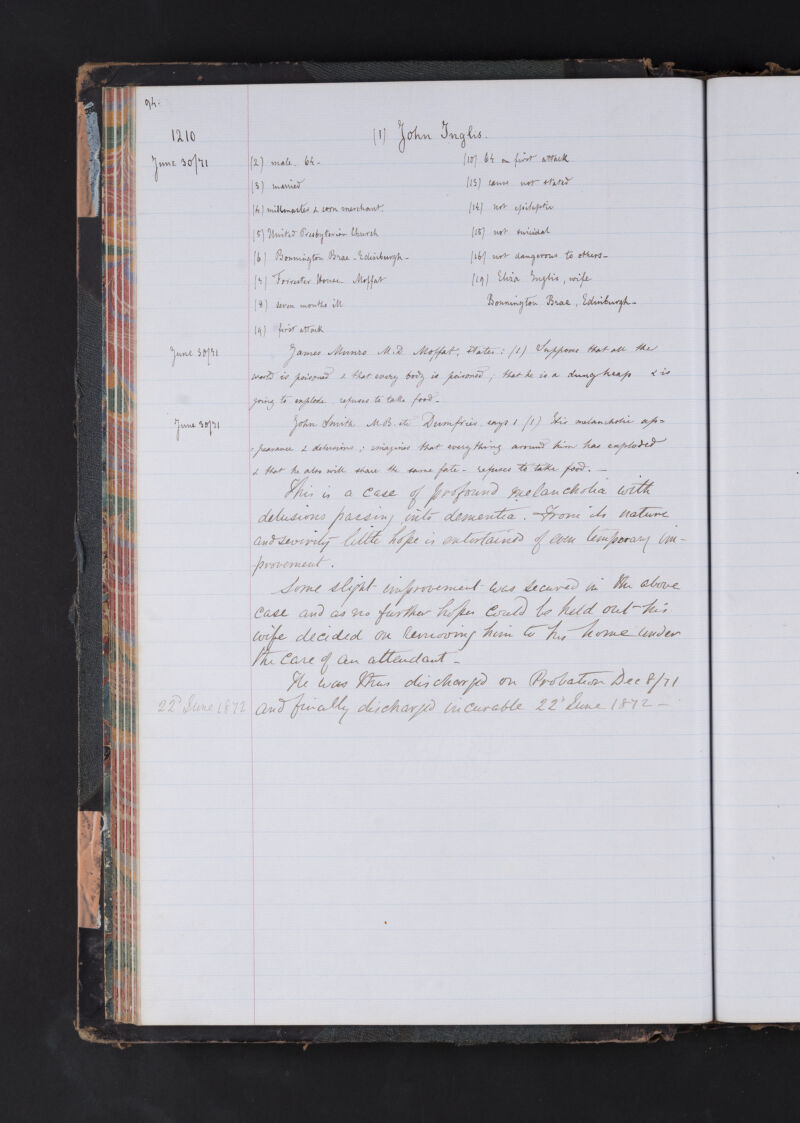 94.
1210 (1) John Inglis.
June 30/71 (2) male. 64 - (10) 64 on first attack
(3) married (13) cause not stated
(4) millmaster & corn merchant. (14) not epileptic
(5) United Presbyterian Church (15) not suicidal
(6) Bonnington Brae - Edinburgh - (16) not dangerous to others -
(7) Forrester House. Moffat (19) Eliza Inglis, wife
(8) seven months ill Bonnington Brae, Edinburgh -
(9) first attack
June 30/71 James Munro M.D. Moffat, states: (1) Supposes that all the
world is poisoned & that every body is poisoned; that he is a dung heap & is
going to explode. refuses to take food -
June 30/71 John Smith M.B. etc Dumfries. says: (1) His melancholic ap=
-pearance & delusions; imagines that everything around him has exploded
& that he also will share the same fate - refuses to take food. -
This is a case of profound melancholia with
delusions passing into dementia. From its nature
and severity little hope is entertained of even temporary im-
provement.
Some slight improvement was secured in the above
case and as no further hopes could be held out his
wife decided on removing him to his home under
the care of an attendant -
He was thus discharged on Probation Dec 8/71
22d June 1872 and finally discharged incurable 22d June 1872 -